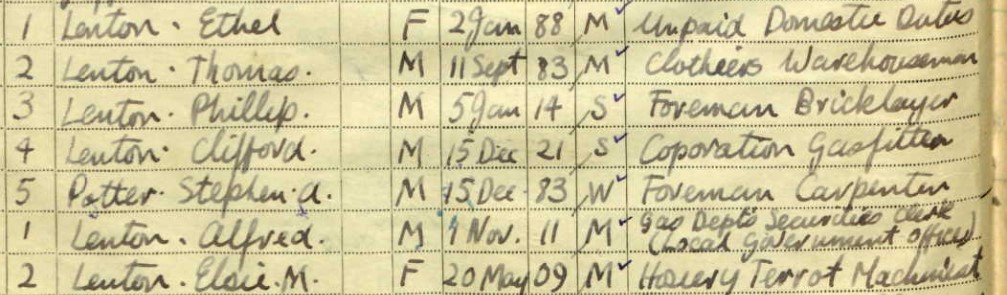 1 Lenton. Ethel F 2 Jan 88 M Unpaid Domestic Duties
2 Lenton. Thomas. M 11 Sept 83 M Clothiers Warehouseman
3 Lenton. Phillip. M 5 Jan 14 S Foreman Bricklayer
4 Lenton. Clifford. M 15 Dec 21 S Coporation Gasfitter
5 Potter. Stephen. A. M 15 Dec 83 W Foreman Carpenter
1 Lenton. Alfred. M Nov. 11 M Gas Depts Securities Clerk
(Local Government Officer)
2 Lenton. Elsie. M. F 20 May 09 M Hosiery Terrot Machinist